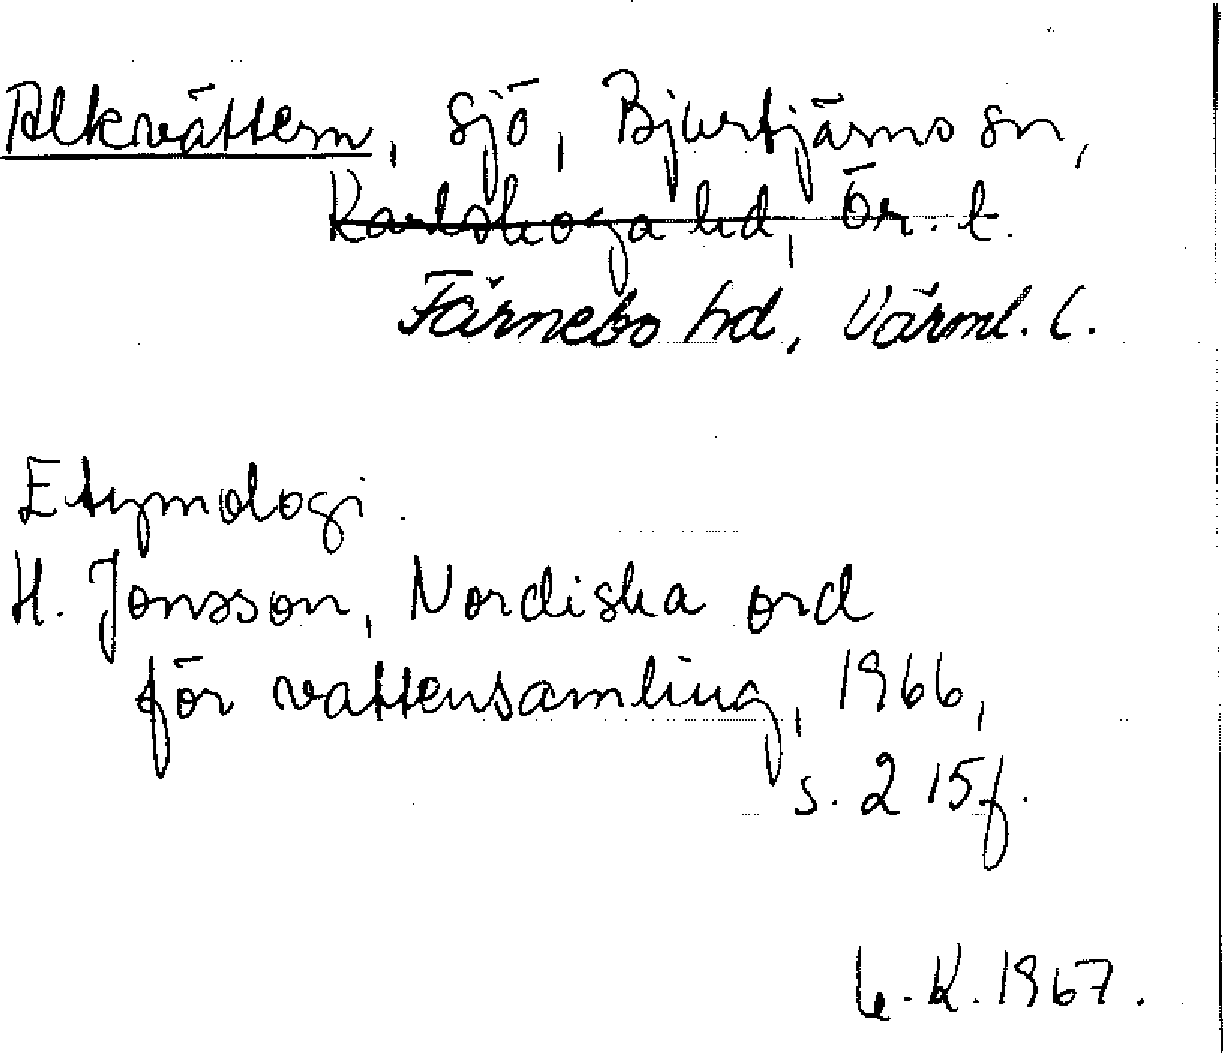 Alkvättern, sjö, Bjurtjärns sn,
Karlskoga hd, Ör. l.
Färnebo hd, Värml. l.
Etymologi.
H. Jonsson, Nordiska ord
för vattensamling, 1966,
s. 215f.
K. 1967.